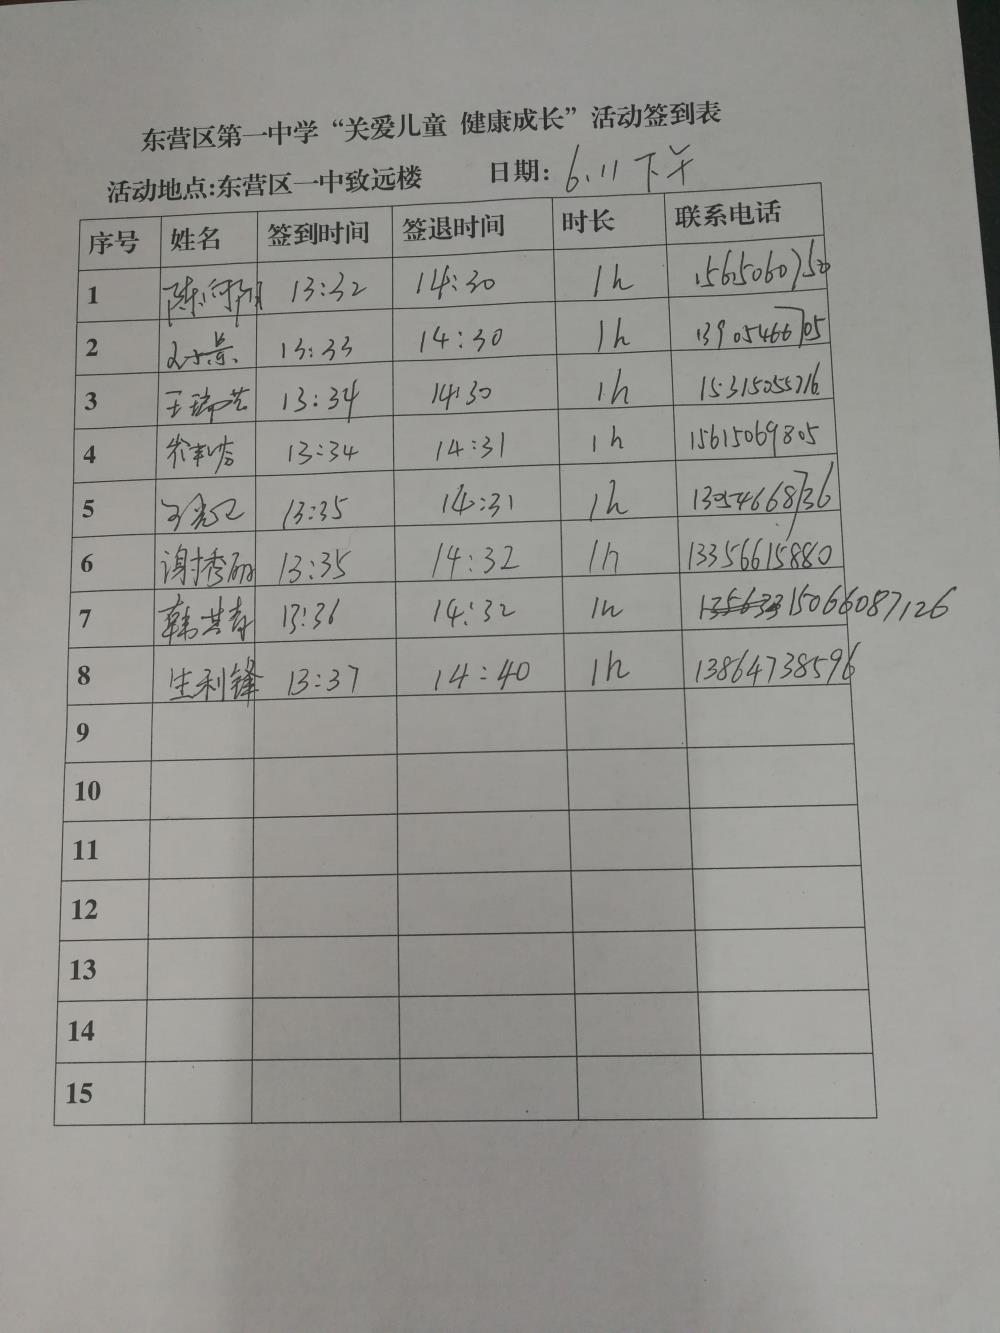 东营区第一中学“关爱儿童 健康成长”活动签到表
活动地点:东营区一中致远楼 日期: 6.11 下午
序号 姓名 签到时间 签退时间 时长 联系电话
1 13:32 14:30 1h 15615060750
2 13:33 14:30 1h 13905466705
3 王瑞芸 13:34 14:30 1h 15315055716
4 13:34 14:31 1h 15615069805
5 13:35 14:31 1h 13054668736
6 谢秀丽 13:35 14:32 1h 13356615880
7 韩其春 13:36 14:32 1h 15066087126
8 生利锋 13:37 14:40 1h 13864738596
9
10
11
12
13
14
15